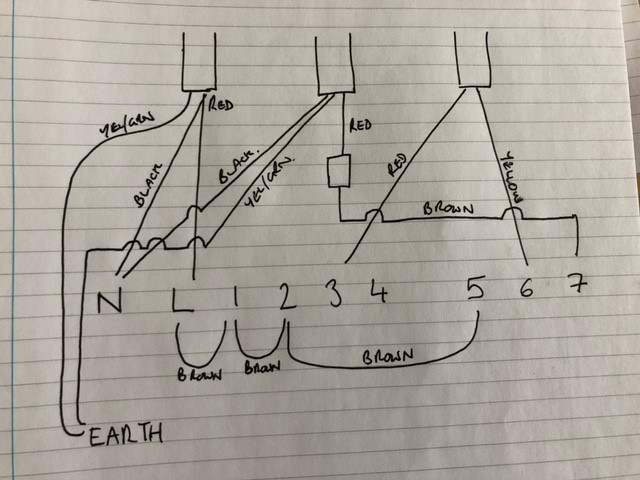 RED
YEL/GRN
RED
BLACK.
RED
BLACK
YEL/GRN.
YELLOW
BROWN
N L 1 2 3 4 5 6 7
BROWN
BROWN
BROWN
EARTH